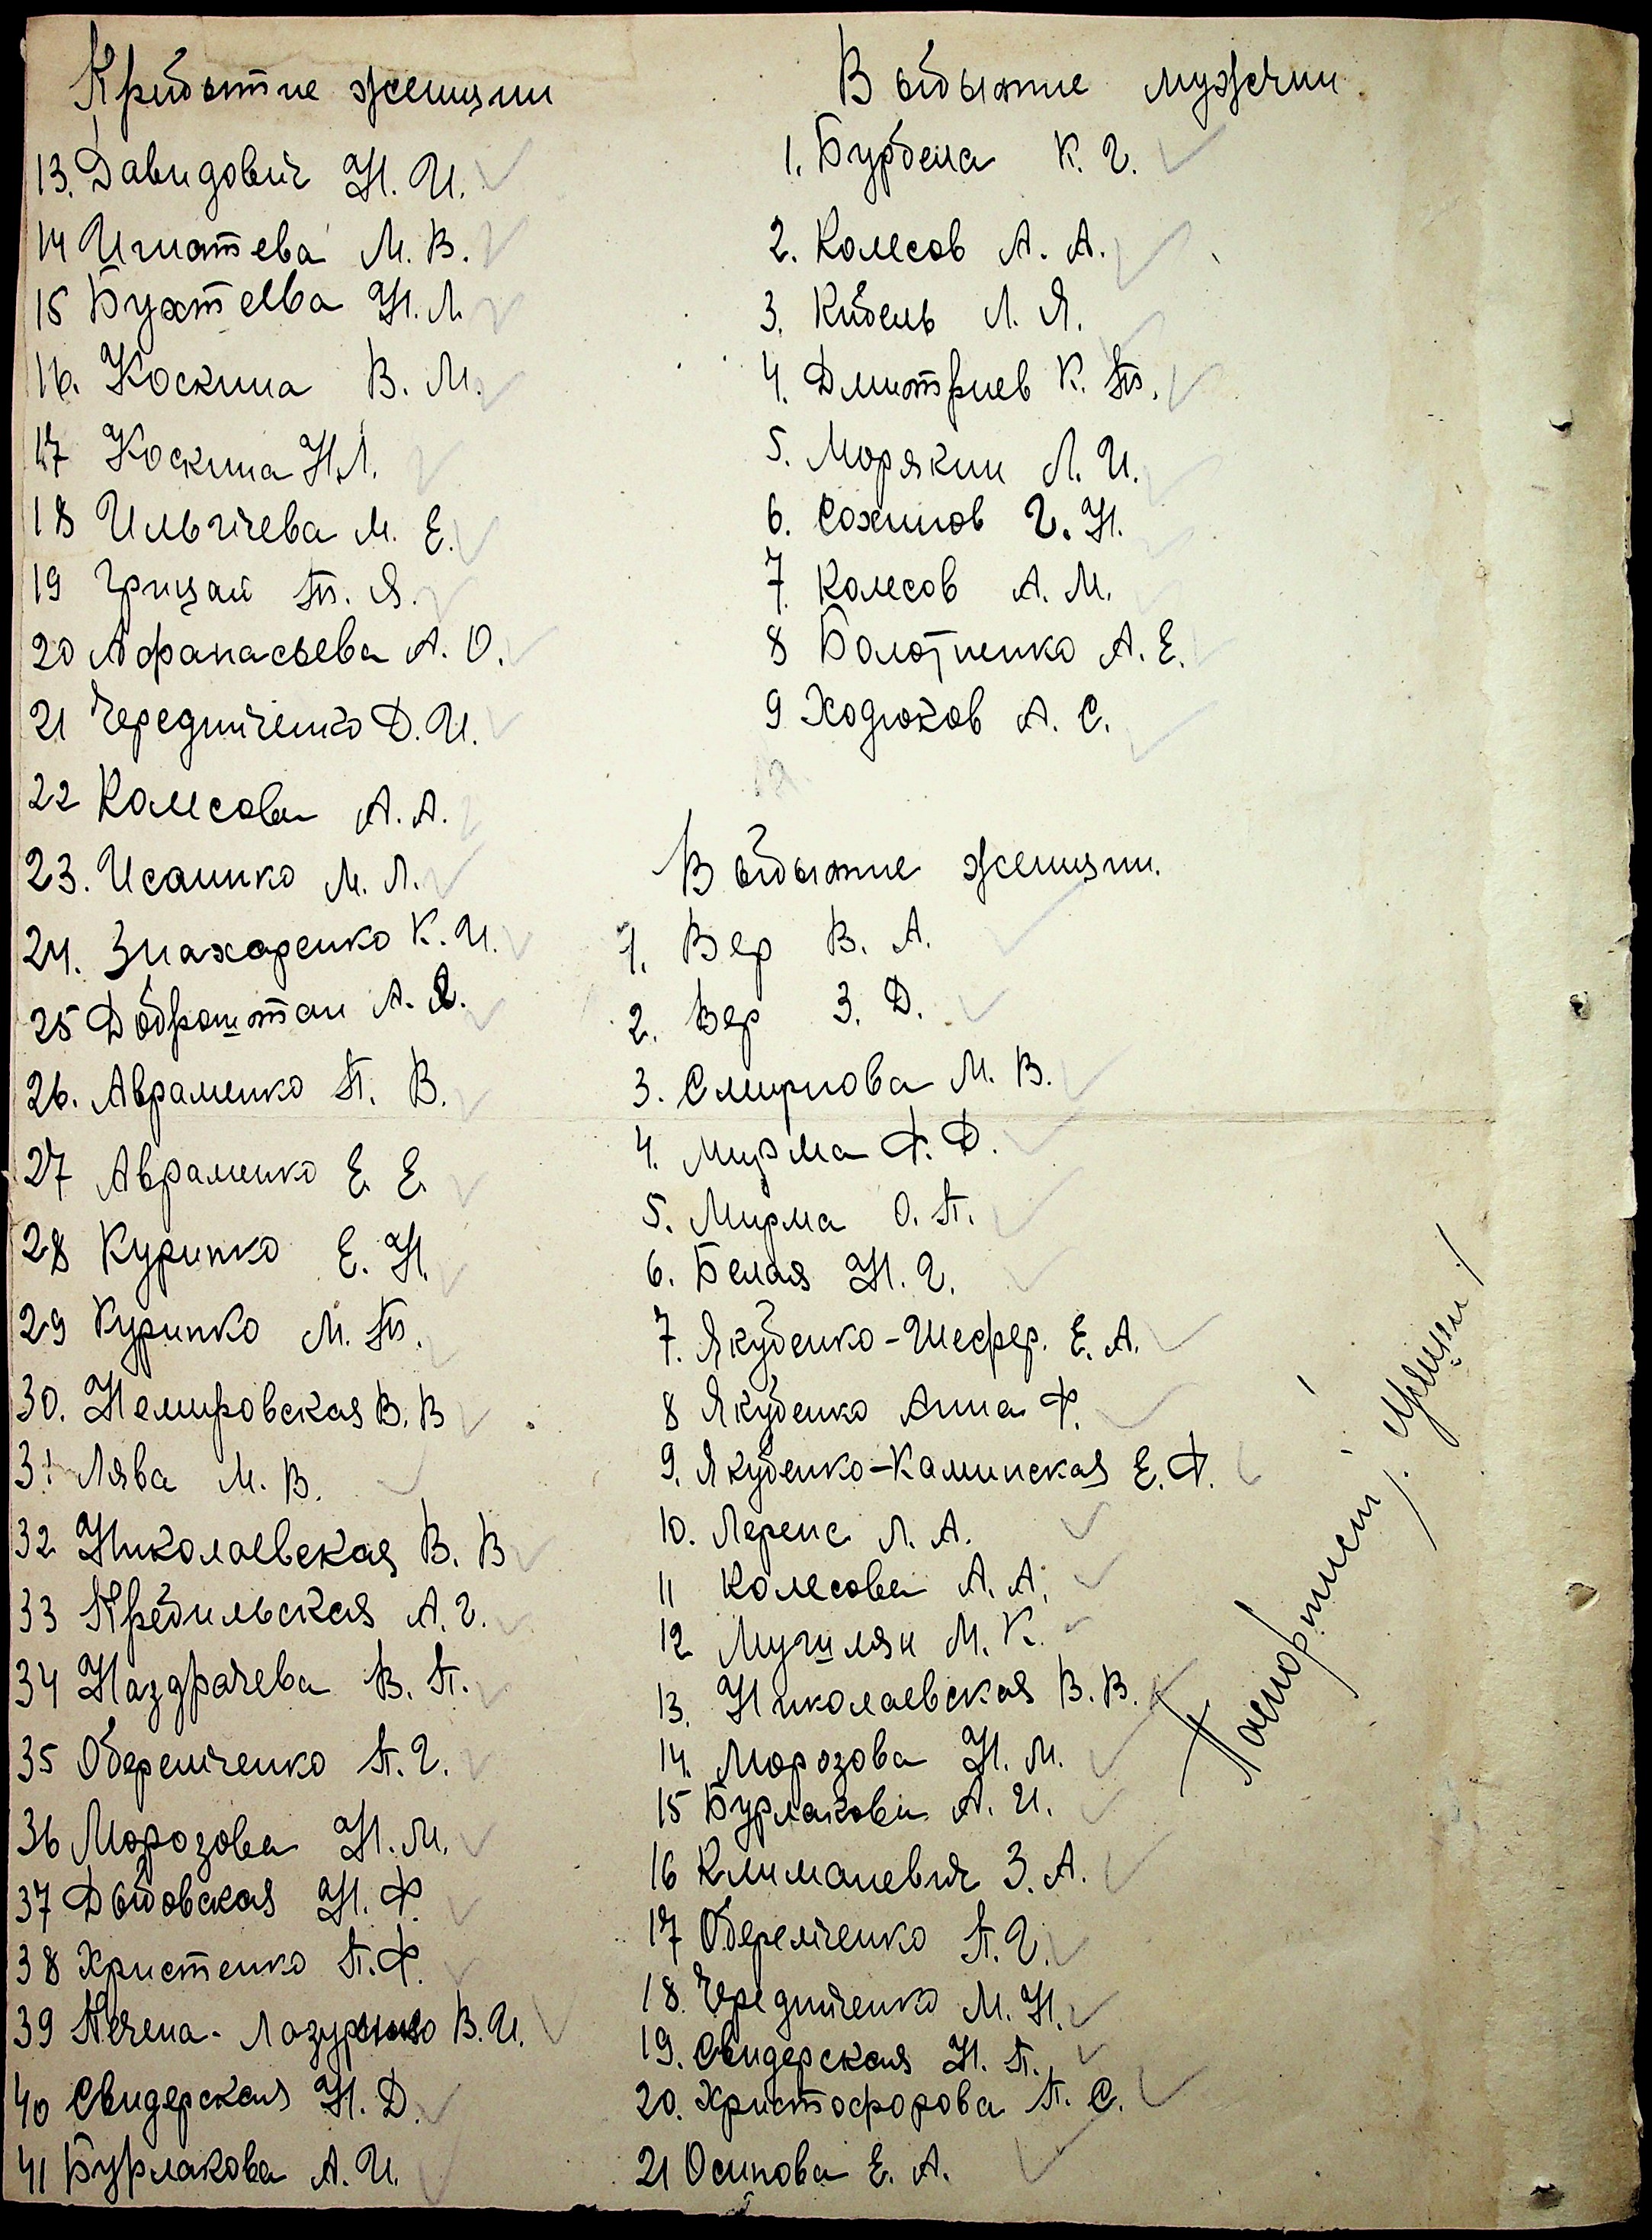 Прибытие женщин
13. Давидович Н. И.
14 Игнатева М. В.
15 Бухтеева Н. Л.
16. Коскина В. М.
17 Коскина Н. Л.
18 Ильичева М. Е.
19 Грицай Т. Я.
20 Афанасьева А. О.
21 Чередниченко Д. И.
22 Колесова А. А.
23. Исаенко М. Л.
24. Знахоренко К. И.
25 Доброштан А. Я.
26. Авраменко П. В.
27 Авраменко Е. Е.
28 Курипко Е. Н.
29 Курипко М. Т.
30. Немировская В. В
31 Лява М. В.
32 Николаевская В. В
33 Кребильская А. Г.
34 Наздрачева В. П.
35 Оберемченко П. Г.
36 Морозова Н. М.
37 Дыбовская Н. Ф.
38 Христенко П. Ф.
39 Печена - Лазуренко В. И.
40 Свидерская Н. Д.
41 Бурлакова А. И.
Выбытие мужчин.
1. Бурбела К. Г.
2. Колесов А. А.
3. Кибель Л. Я.
4. Дмитриев К. Т.
5. Морякин Л. И.
6. Сохинов Г. Н.
7. Колесов А. М.
8 Болотненко А. Е.
9 Ходюков А. С.
Выбытие женщин.
1. Вер В. А.
2. Вер З. Д.
3. Смирнова М. В.
4. Мирма Ф. Ф.
5. Мирма О. П.
6. Белая Н. Г.
7. Якубенко-Шефер. Е. А.
8 Якубенко Анна Ф.
9. Якубенко-Каминская Е. Ф.
10. Леренс Л. А.
11 Колесова А. А.
12 Мугилян М. К.
13. Николаевская В. В.
14. Морозова Н. М.
15 Бурлакова А. И.
16 Климаневич З. А.
17 Оберемченко П. Г.
18. Чередниченко М. Н.
19. Свидерская Н. П.
20. Христофорова П. С.
21 Осипова Е. А.
Паспортист